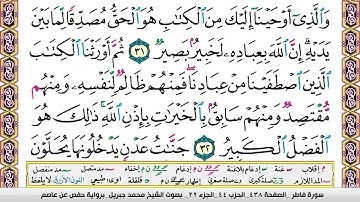 وَٱلَّذِىٓ أَوْحَيْنَآ إِلَيْكَ مِنَ ٱلْكِتَٰبِ هُوَ ٱلْحَقُّ مُصَدِّقًا لِّمَا بَيْنَ
يَدَيْهِ إِنَّ ٱللَّهَ بِعِبَادِهِۦ لَخَبِيرٌۢ بَصِيرٌ ٣١ ثُمَّ أَوْرَثْنَا ٱلْكِتَٰبَ
ٱلَّذِينَ ٱصْطَفَيْنَا مِنْ عِبَادِنَا فَمِنْهُمْ ظَالِمٌ لِّنَفْسِهِۦ وَمِنْهُم
مُّقْتَصِدٌ وَمِنْهُمْ سَابِقٌۢ بِٱلْخَيْرَٰتِ بِإِذْنِ ٱللَّهِ ذَٰلِكَ هُوَ
ٱلْفَضْلُ ٱلْكَبِيرُ ٣٢ جَنَّٰتُ عَدْنٍ يَدْخُلُونَهَا يُحَلَّوْنَ
سورة فاطر الصفحة ٤٣٨ الحزب ٤٤ الجزء ٢٢ بصوت الشيخ محمد جبريل برواية حفص عن عاصم